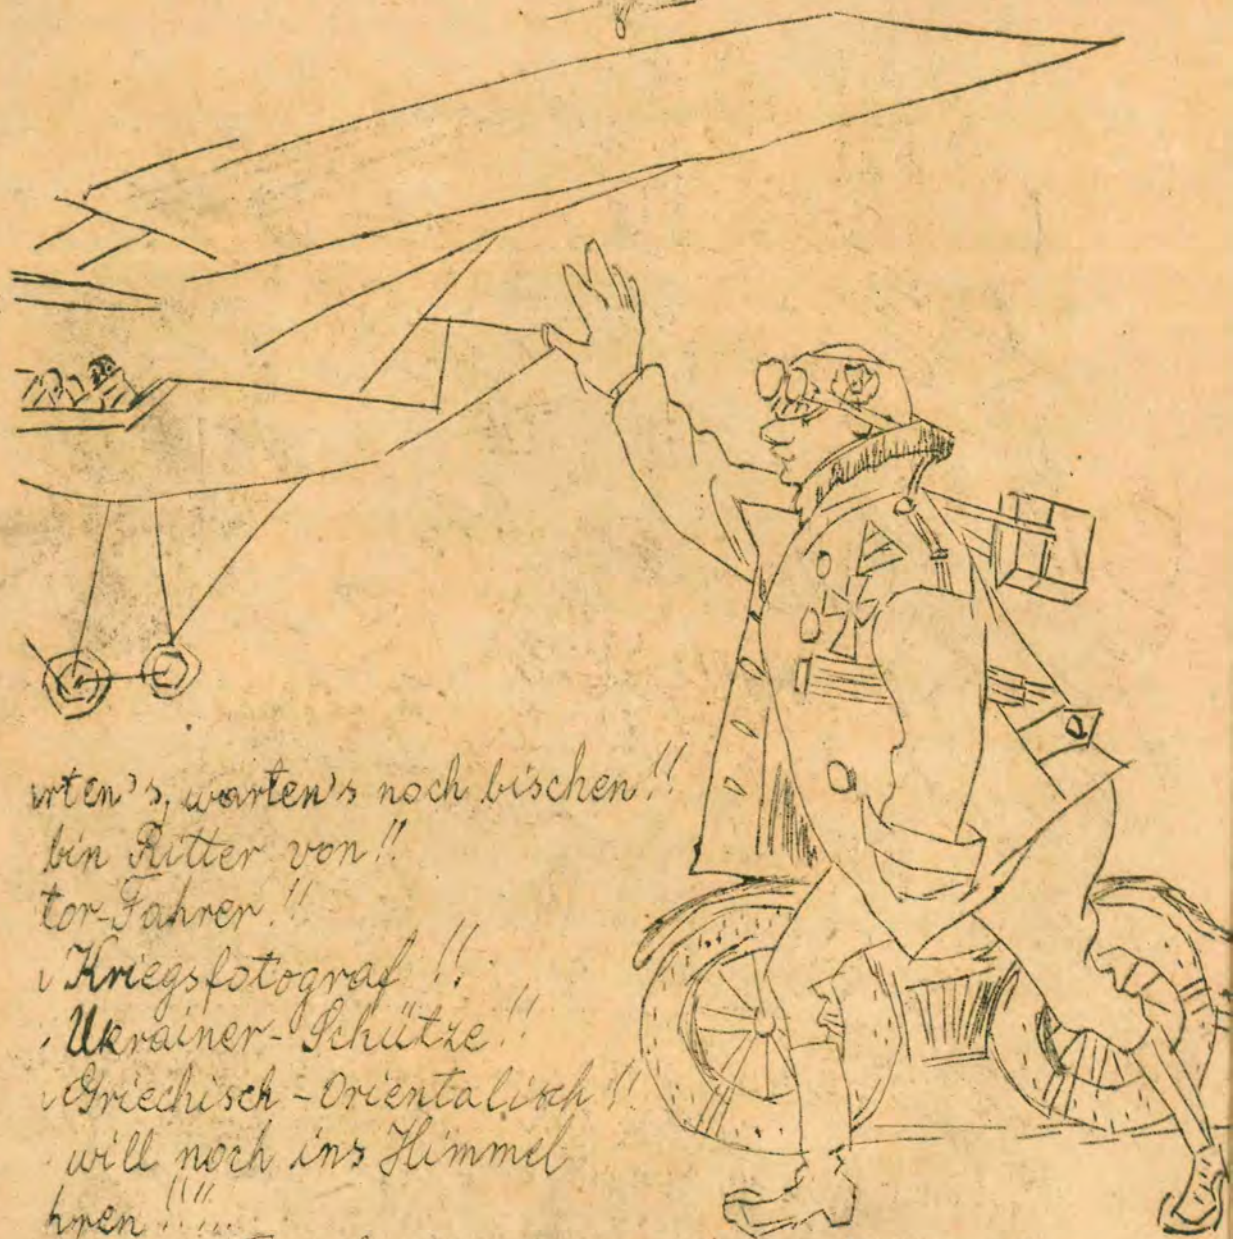 rten's, warten's noch bischen!!
bin Ritter von!!
tor-Fahrer!!
Kriegsfotograf!!
Ukrainer-Schütze!!
Griechisch-Orientalisch!!
will noch ins Himmel
hren!!!!